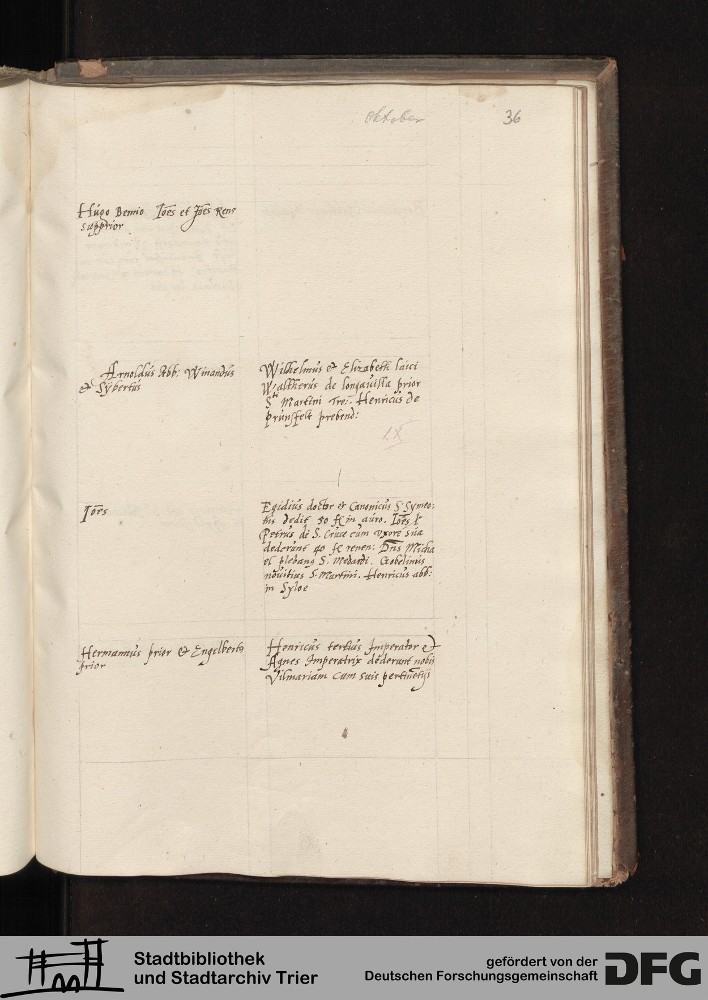 Oktober 36
Hugo Bemio Joes et Joes Rens
supprior
Arnoldus Abb: Winandus
et Sybertus
Wilhelmus et Elizabeth laici
Waltherus de longauilla prior
Sti Martini Tre:. Henricus de
prunsfelt prebend:
IX
Joes
Egidius doctor et Canonicus S. Symeo:
nis dedit 50 fl in auro. Joes
Petrus de S. Cruce cum vxore sua
dederunt 40 fl renen: Dns Micha
el plebang S. Medardi. Gobelinus
nouitius S. Martini. Henricus abb:
in Syloe
Hermannus prior et Engelberto
prior
Henricus tertius Imperator et
Agnes Imperatrix dederunt nobis
Vilmariam cum suis pertinetijs
Stadtbibliothek
und Stadtarchiv Trier
gefördert von der
Deutschen Forschungsgemeinschaft
DFG